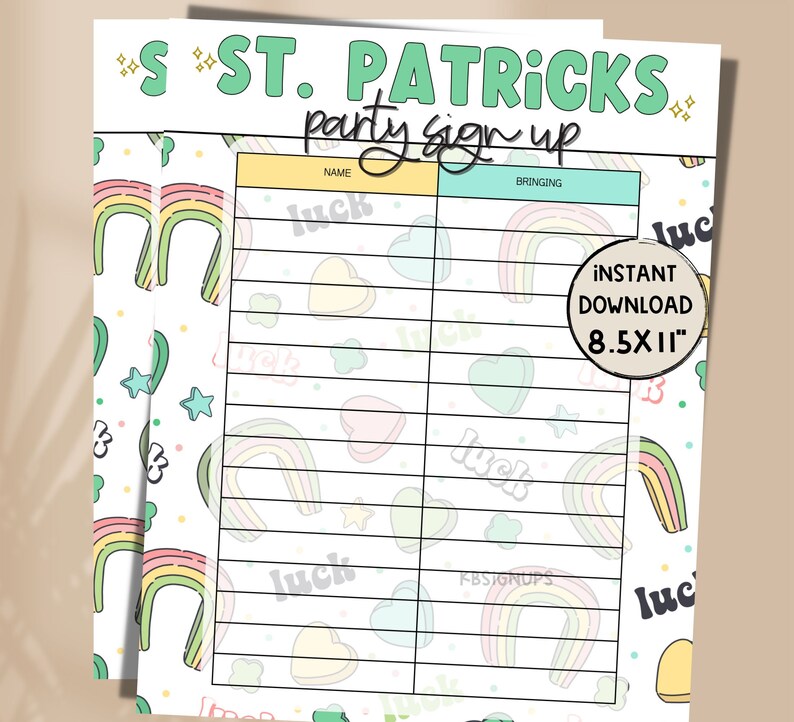 ST. PATRiCKS
party sign up
NAME
BRINGING
luck
luck
iNSTANT
DOWNLOAD
8.5X11"
luck
luck
luck
luck
KBSiGNUPS
luck
luck
luck
luck